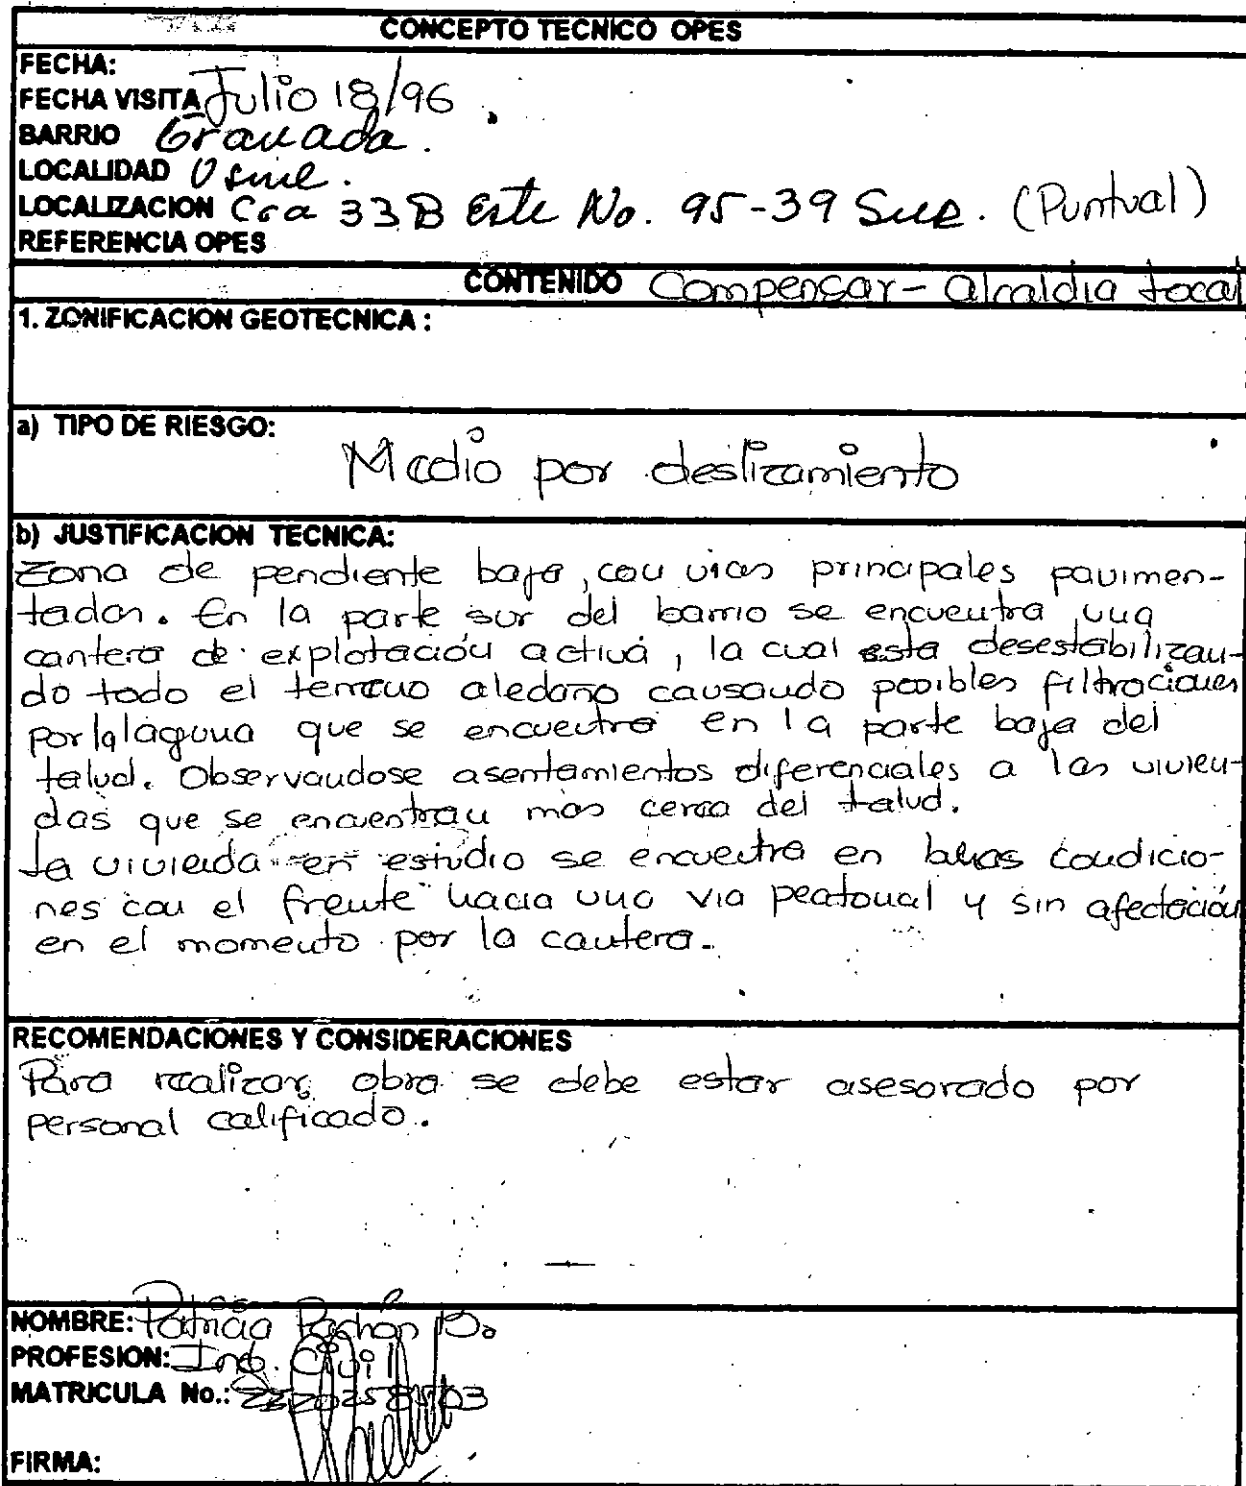 CONCEPTO TECNICO OPES
FECHA:
FECHA VISITA Julio 18/96
BARRIO Granada.
LOCALIDAD Usme.
LOCALIZACION Cra 33B Este No. 95-39 Sur. (Puntual)
REFERENCIA OPES
CONTENIDO Compensar - Alcaldia Local
1. ZONIFICACION GEOTECNICA :
a) TIPO DE RIESGO:
Medio por deslizamiento
b) JUSTIFICACION TECNICA:
Zona de pendiente baja, con vias principales pavimen-
tadas. En la parte sur del barrio se encuentra una
cantera de explotación activa, la cual esta desestabilizan-
do todo el terreno aledaño causando posibles filtraciones
por la laguna que se encuentra en la parte baja del
talud. Observandose asentamientos diferenciales a las vivien-
das que se encuentran mas cerca del talud.
La vivienda en estudio se encuentra en condicio-
nes con el frente hacia una via peatonal y sin afectación
en el momento por la cantera.
RECOMENDACIONES Y CONSIDERACIONES
Para realizar obra se debe estar asesorado por
personal calificado.
NOMBRE: Patricia Pachón
PROFESION: Ing. Civil
MATRICULA No.:
FIRMA: